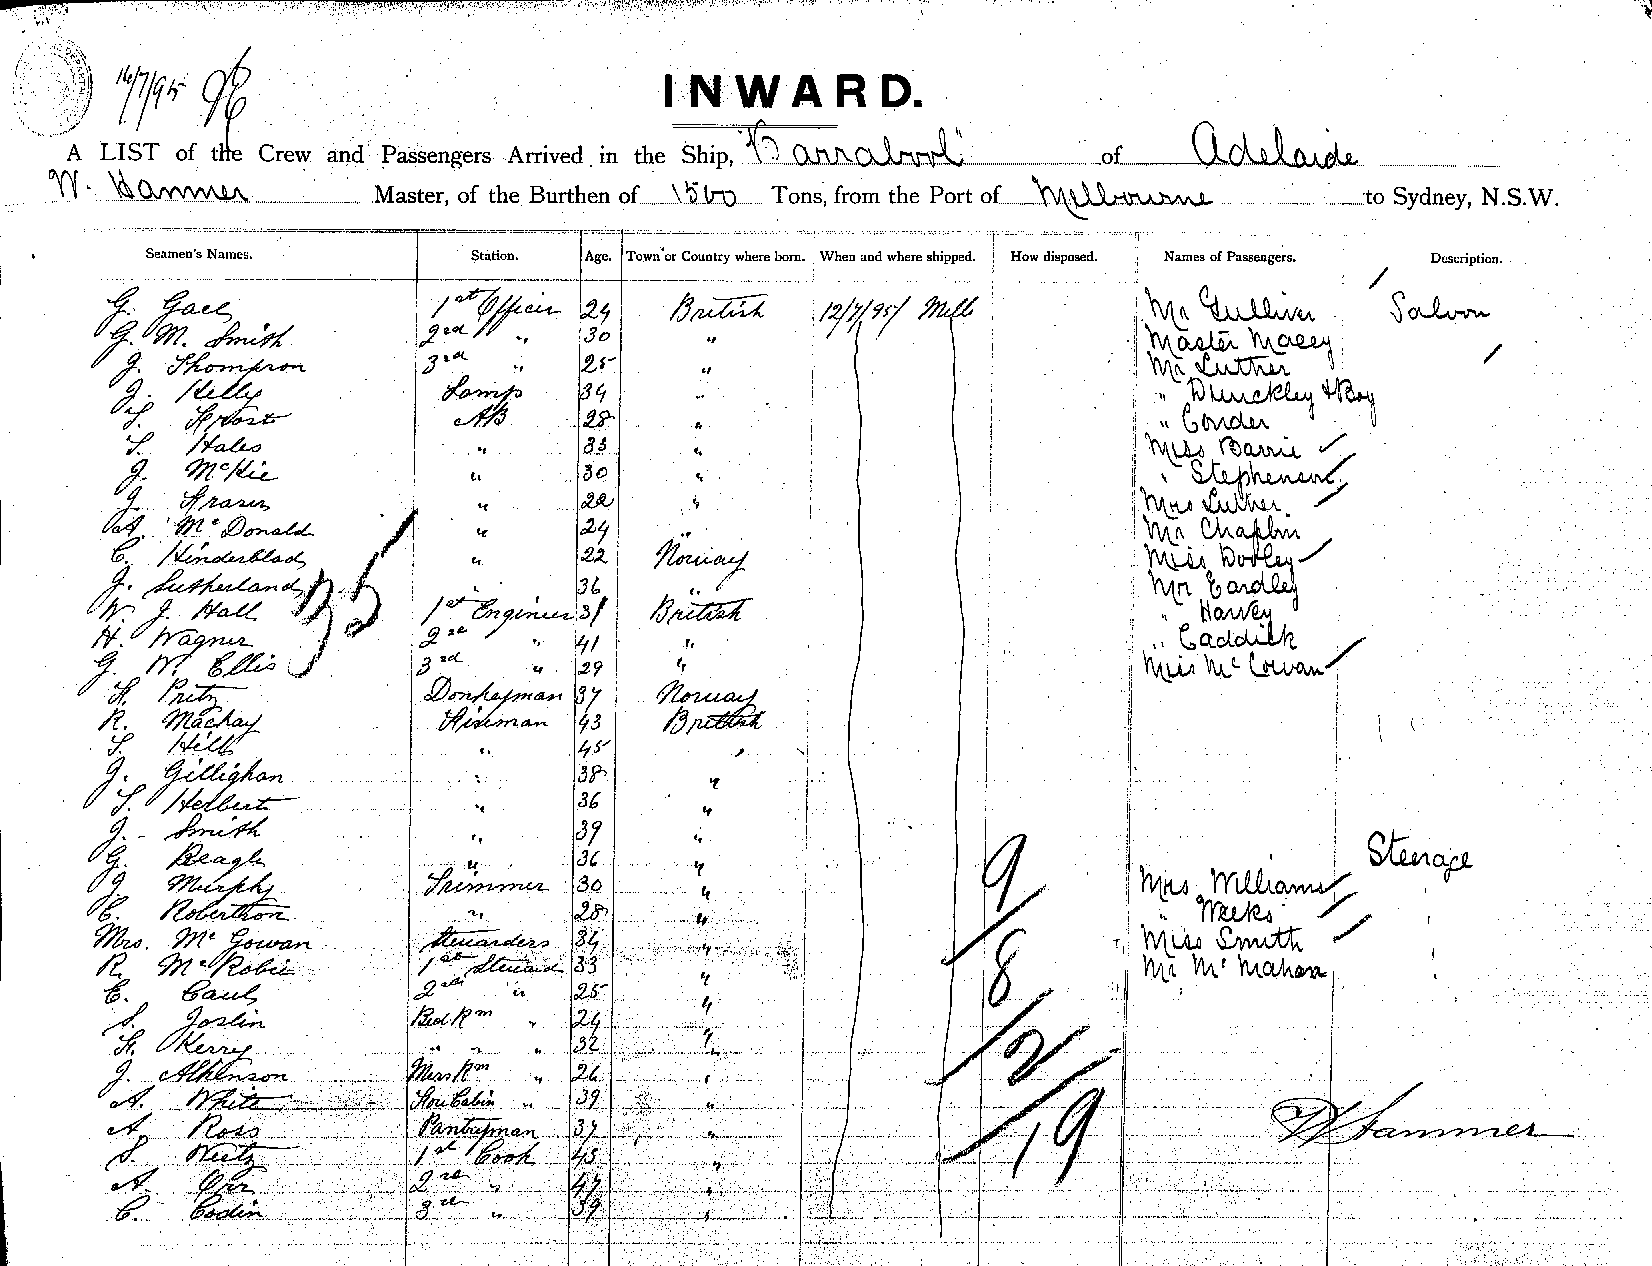 16/7/95
INWARD.
A LIST of the Crew and Passengers Arrived in the Ship, "Barrabool" of Adelaide
W. Hammer Master, of the Burthen of 1500 Tons, from the Port of Melbourne to Sydney, N.S.W.
Seamen's Names. Station. Age. Town or Country where born. When and where shipped. How disposed. Names of Passengers. Description.
G. 1st Officer 29 British 12/7/95 Melb Mr Gulliver Saloon
G. M. Smith 2nd " 30 " Master Macey
J. Thompson 3rd " 25 " Mr Luther
J. Kelly Lamps 34 " " Dunckley & Boy
T. Frost AB 28 " " Conder
T. Hales " 33 " Miss Barrie
J. McKie " 30 " " Stephenson
J. Fraser " 22 " Mrs Luther
A. McDonald " 24 " Mr Chaplin
C. Hinderblad " 22 Norway Miss Dooley
J. Sutherland " 36 " Mr Eardley
W. J. Hall 1st Engineer 31 British " Harvey
H. Wagner 2nd " 41 " " Caddick
G. W. Ellis 3rd " 29 " Miss McCowan
F. Pritz Donkeyman 37 Norway
R. Mackay Fireman 43 British
T. Hill " 45 "
J. Gillighan " 38 "
T. Herbert " 36 "
J. Smith " 39 "
G. Beagle " 36 " Steerage
J. Murphy Trimmer 30 " Mrs Williams
C. Robertson " 28 " " Weeks
Mrs. McGowan Stewardess 34 " Miss Smith
R. McRobie 1st Steward 33 " Mr McMahon
C. Caul 2nd " 25 "
S. Joslin Bed Rm " 24 "
F. Kerry " " " 32 "
J. Atkinson Mess Rm " 26 "
A. White Fore Cabin " 39 "
A. Ross Pantryman 37 " W Hammer
S. 1st Cook 45 "
A. Orr 2nd " 47 "
C. Codin 3rd " 39 "
35
9
8
2
19